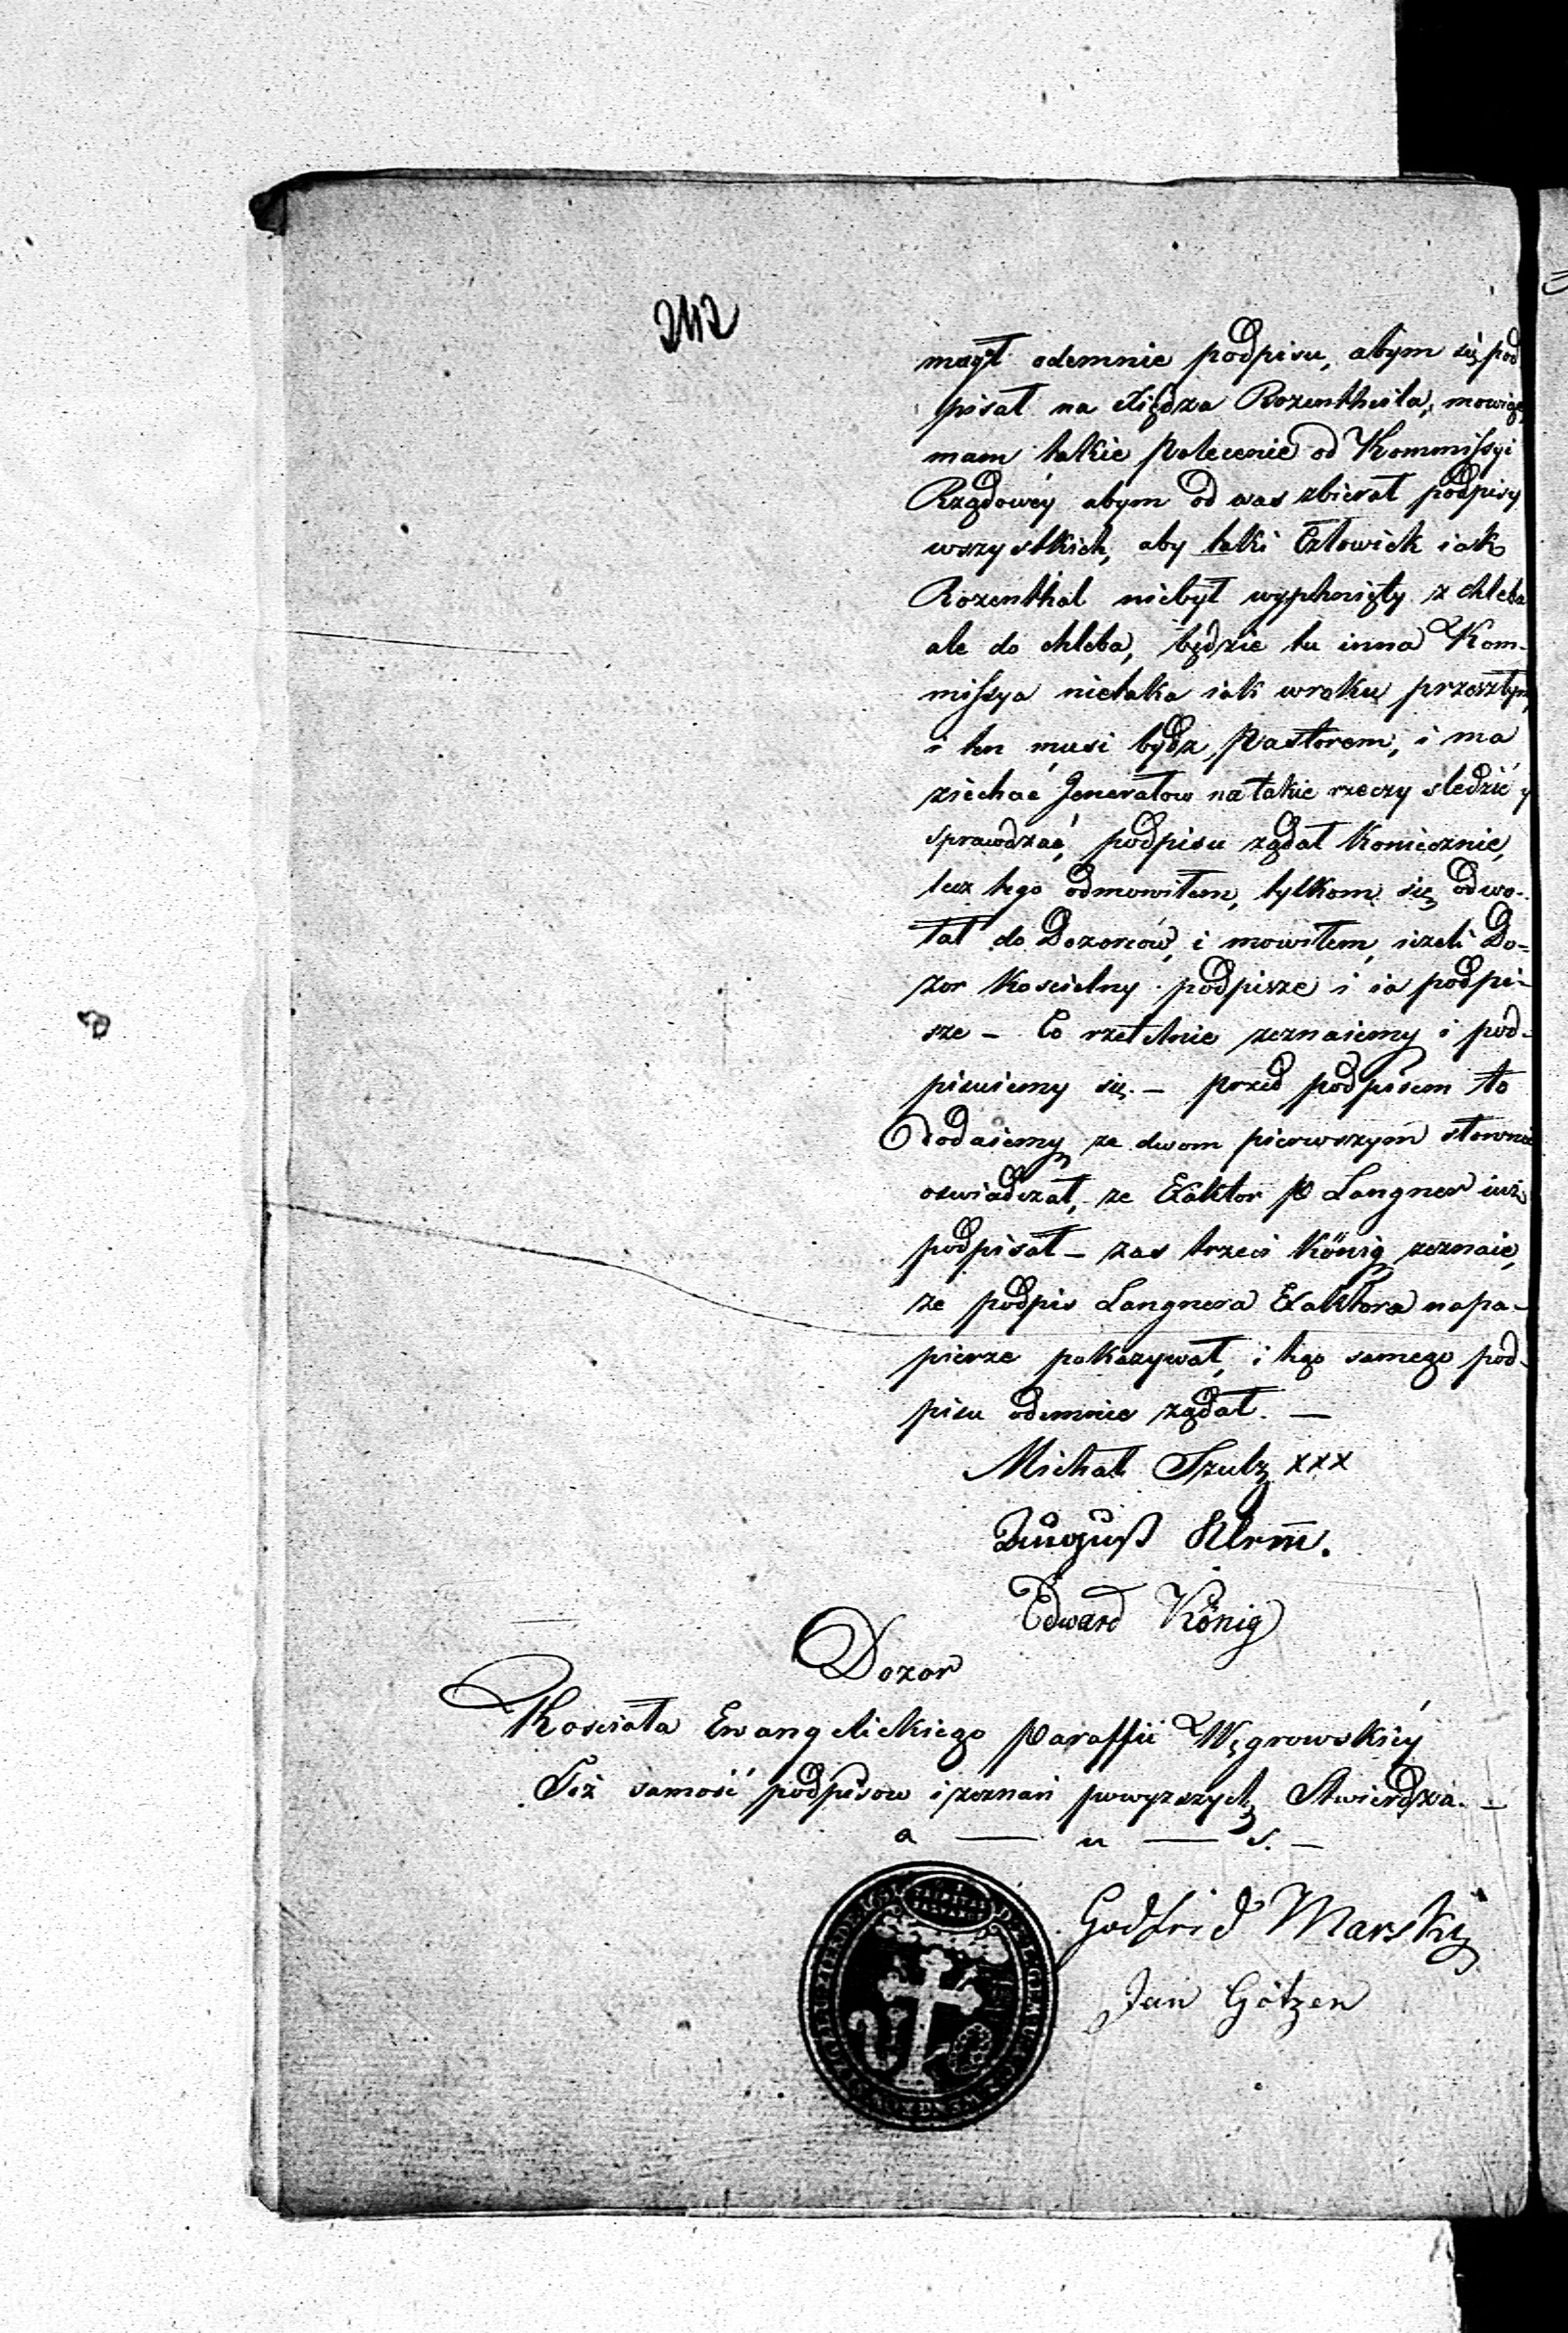 242
magł odemnie podpisu, abym się pod
pisał na Xiędza Rozentheila, mowiąc
mam takie Polecenie od Kommissyi
Rządowéy abym od was zbierał podpisy
wszystkich, aby taki Człowiek iak
Rozenthal niebył wyphnięty z chleba
ale do chleba, będzie tu inna Kom-
missya nietaka iak wroku przeszłym
i ten musi bydz Pastorem, i ma
ziechać Jenerałow na takie rzeczy sledzić y
sprawdzać, podpisu żądał Koniecznie,
lecz tego odmowiłem, tylkom się odwo-
łał do Dozorców, i mowiłem, ieżeli Do-
zor Koscielny podpisze i ia podpi-
sze – Co rzetelnie zeznaiemy i pod-
pisuiemy się. – przed podpisem to
Dodaiemy ze dwom pierwszym słownie
oswiadczał, ze Exaktor P Langner iuż
podpisał – zas trzeci König zeznaie,
ze podpis Langnera Exaktora na pa-
pierze pokazywał, i tego samego pod-
pisu odemnie ządał. –
Michał Szulz xxx
August
Edward König
Dozor
Koscioła Ewangelickiego Paraffii Węgrowskiéy
Toż samość podpisow i zeznań powyzszych Stwierdza. –
a — u — s. –
Godfrid Marsky
Jan Götzen